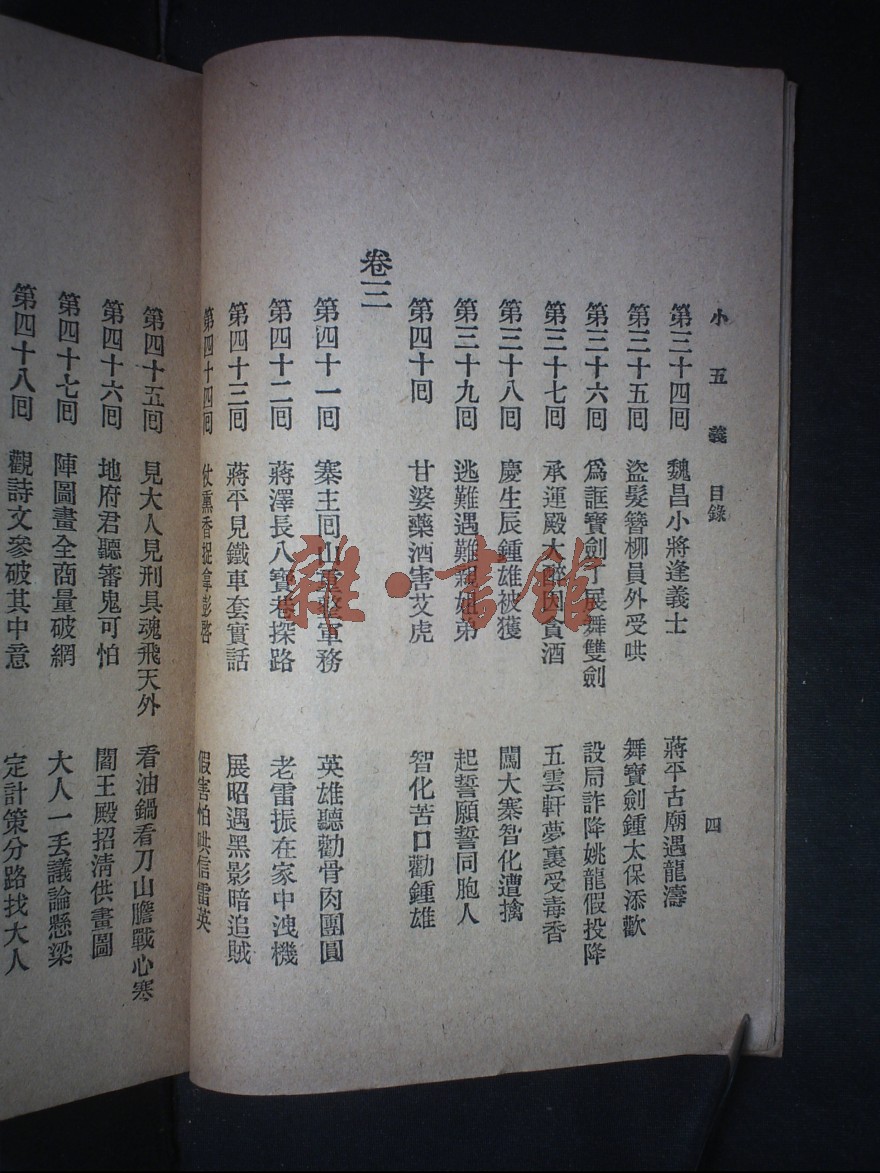 小五義 目錄 四
第三十四回 魏昌小將逢義士 蔣平古廟遇龍濤
第三十五回 盜髮簪柳員外受哄 舞寶劍鍾太保添歡
第三十六回 爲誆寶劍丁展舞雙劍 設局詐降姚龍假投降
第三十七回 承運殿大醉因貪酒 五雲軒夢裏受毒香
第三十八回 慶生辰鍾雄被獲 闖大寨智化遭擒
第三十九回 逃難遇難親姐弟 起誓願誓同胞人
第四十回 甘婆藥酒害艾虎 智化苦口勸鍾雄
卷三
第四十一回 寨主回山重整軍務 英雄聽勸骨肉團圓
第四十二回 蔣澤長八寶巷探路 老雷振在家中洩機
第四十三回 蔣平見鐵車套實話 展昭遇黑影暗追賊
第四十四回 仗熏香捉拿彭啓 假害怕哄信雷英
第四十五回 見大人見刑具魂飛天外 看油鍋看刀山膽戰心寒
第四十六回 地府君聽審鬼可怕 閻王殿招清供畫圖
第四十七回 陣圖畫全商量破網 大人一丟議論懸梁
第四十八回 觀詩文參破其中意 定計策分路找大人
雜·書館